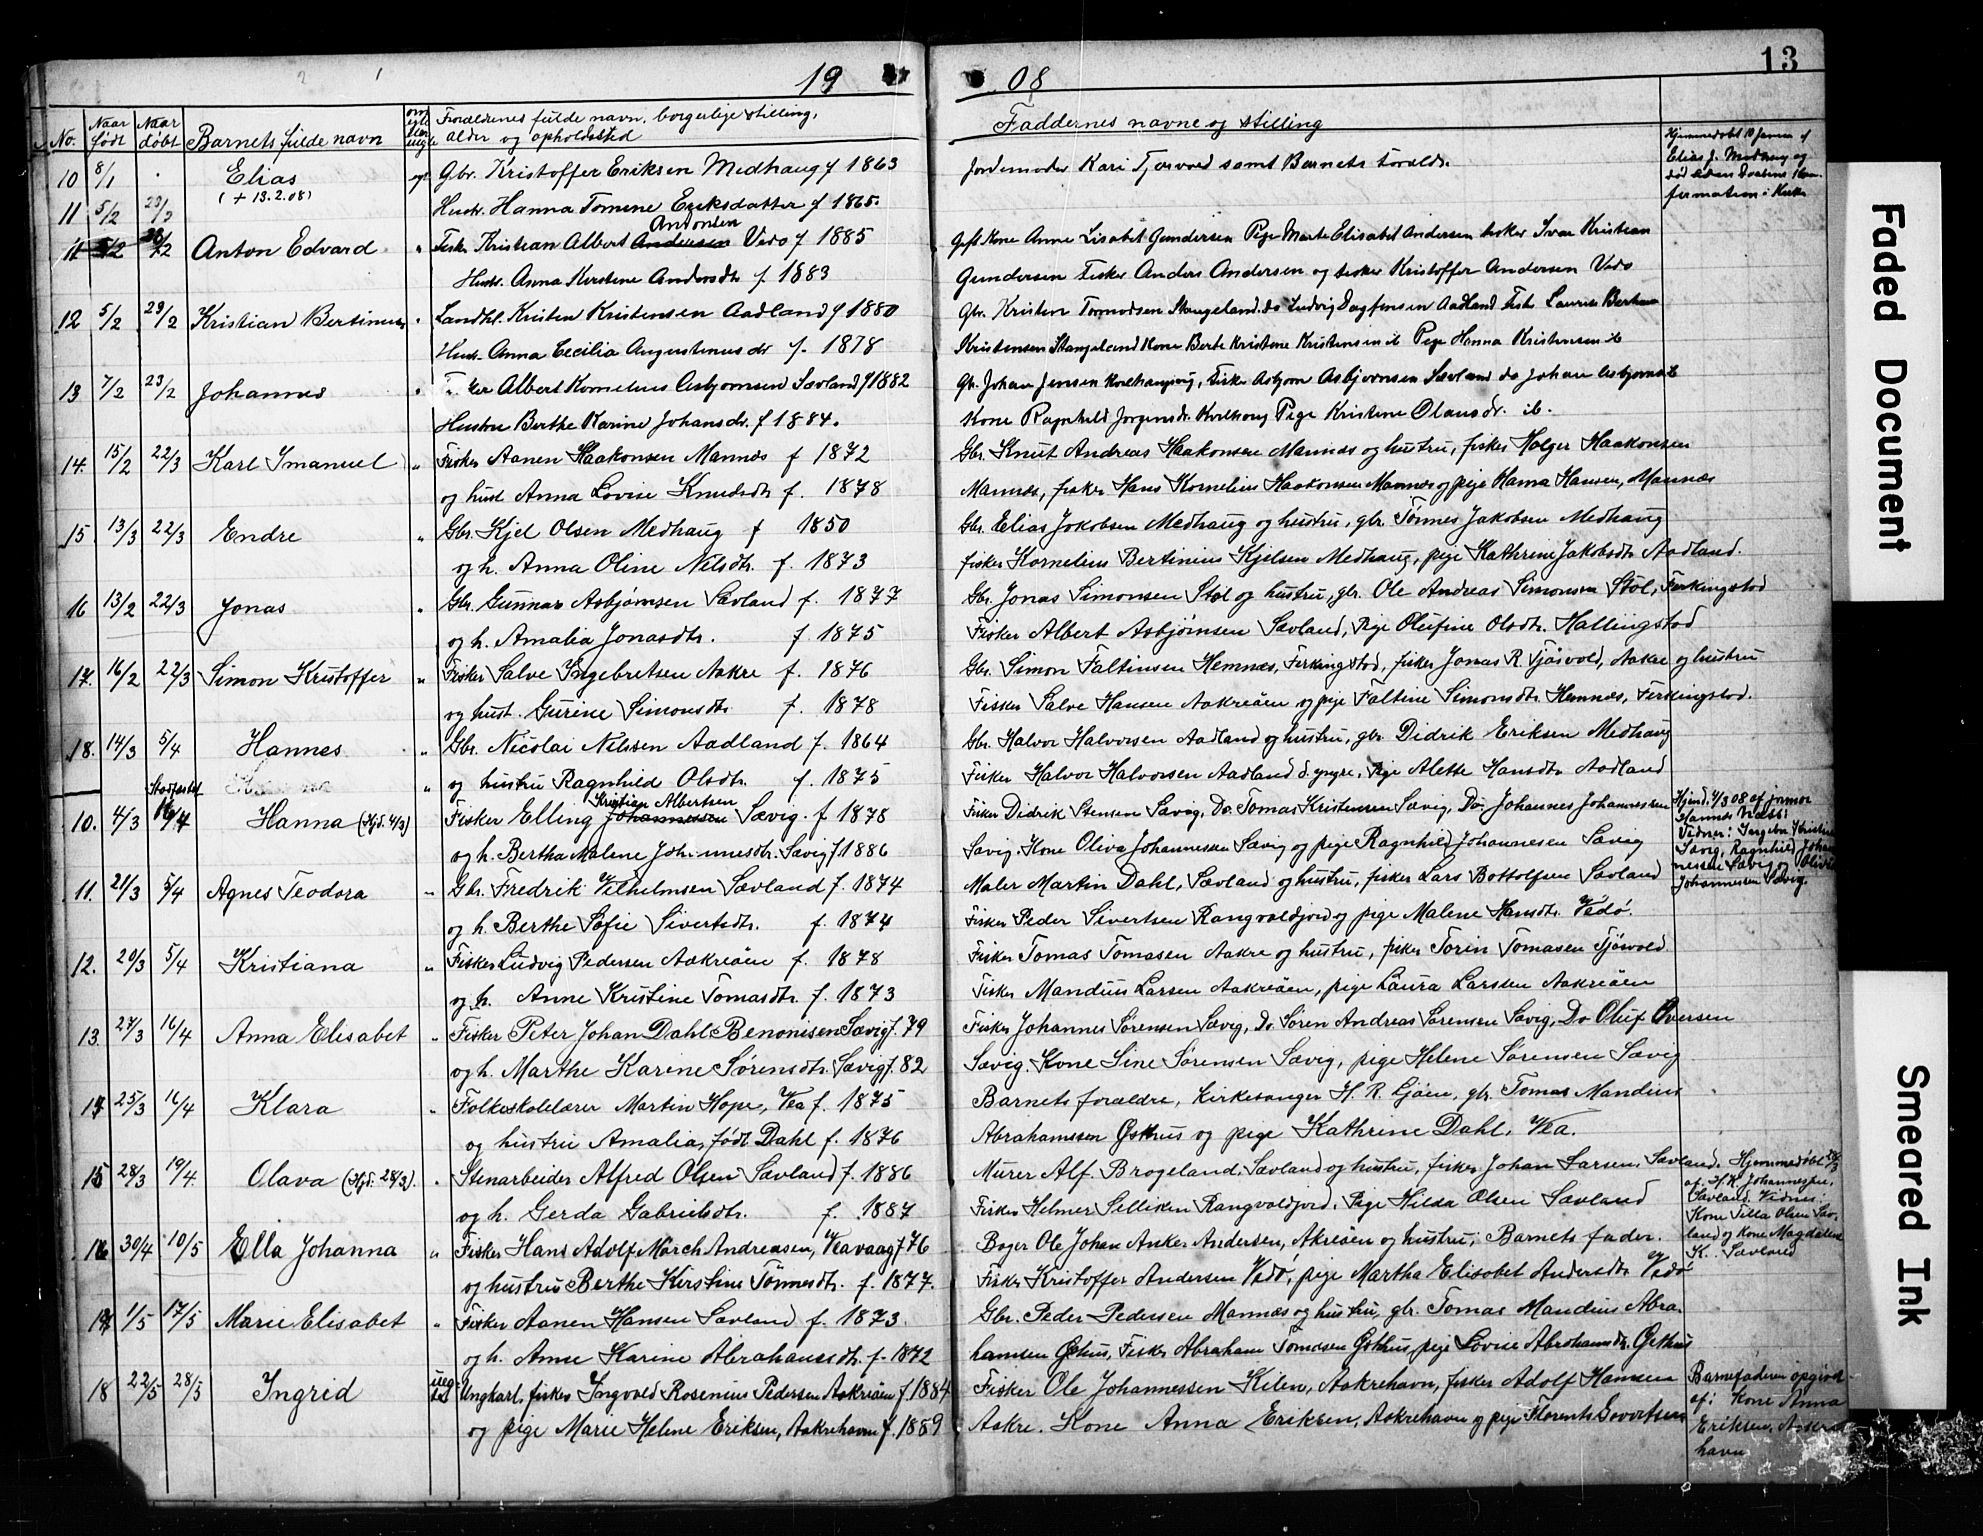 19 08
13
No. Naar født Naar døbt Barnets fulde navn Forældrenes fulde navn, borgerlige stilling, alder og opholdssted
Faddernes navne og stilling
10 8/1 Elias Gbr. Kristoffer Eriksen Medhaug f 1863 Jordemoder Kari samt Barnets
(+ 13.2.08)
11 5/2 23/2 Hustr. Hanna Tomine Eriksdatter f 1865.
Antonsen
11 5/2 23/2 Anton Edvard " Fisker Kristian Albert Andersen Vedø f 1885 Gift Kone Anne Lisabet Gundersen Pige Marte Elisabet Andersen Ivar Kristian
Hustr. Anna Kerstene Andersdtr f. 1883 Gundersen Fisker Anders Andersen og fisker Kristoffer Andersen Vedø
12 5/2 23/2 Kristian Bertinius Landhl. Kristen Kristensen Aadland f 1880 Gbr. Kristen Tormodsen Stangeland. do Ludvig Dagfinsen Aadland Fisk Laurits
Hustr. Anna Cecilia Augustinusdr f. 1878 Kristensen Stangeland Kone Berte Kristine Kristensen ib Pige Hanna Kristensen ib
13 7/2 23/2 Johannes " Fisker Albert Kornelius Asbjørnsen Sævland f 1882 Gb. Johan Jensen Fisker Asbjørn Asbjørnsen Sævland do Johan
Hustru Berthe Karine Johansdr. f 1884. Kone Ragnhild Jørgensdr. Pige Kristine Olausdr. ib.
14. 15/2 22/3 Karl Imanuel " Fisker Aanen Haakonsen Mannes f 1872 Gbr. Knut Andreas Haakonsen Mannes og hustru, fisker Holger Haakonsen
og hust Anna Lovise Knudsdtr f. 1878 Mannes, fisker Hans Kornelius Haakonsen Mannes og pige Hanna Hansen, Mannæs
15 13/3 22/3 Endre " Gbr. Kjel Olsen Medhaug f 1850 Gbr. Elias Jakobsen Medhaug og hustru, gbr. Tønnes Jakobsen Medhaug
og h. Anna Oline Nilsdtr. f. 1873 fisker Kornelius Bertinius Kjelsen Medhaug, pige Kathrine Jakobsdtr Aadland.
16 13/2 22/3 Jonas " Gbr. Gunnar Asbjørnsen Sævland f. 1877 Gbr. Jonas Simonsen Støl og hustru, gbr. Ole Andreas Simonsen Støl, Ferkingstod
og h. Amalia Jonasdtr. f 1875 Fisker Albert Asbjørnsen Sævland, Pige Olufine Olsdtr. Hallingstad
17. 16/2 22/3 Simon Kristoffer " Fisker Salve Ingebretsen Aakre f. 1876 Gbr. Simon Faltinsen Hemnes, Ferkingstod, fisker Jonas R. Tjøsvold, Aakre og hustru
og hust. Gurine Simonsdtr. f. 1878 Fisker Salve Hansen Aakreøen og pige Faltine Simonsdtr. Hemnæs, Ferkingstod.
18. 14/3 5/4 Hannes " Gbr. Nicolai Nilssen Aadland f. 1864 Gbr. Halvor Halvorsen Aadland og hustru, gbr Didrik Eriksen Medhaug
Stadfæstet " og hustru Ragnhild Olsdtr. f. 1875 Fisker Halvor Halvorsen Aadland d. yngre, Pige Alette Hansdtr Aadland
Kristian Albertsen
10. 4/3 16/4 Hanna (Hjd. 4/3) Fisker Elling Johannessen Sævig. f 1878 Fisker Didrik Stensen Sævig, Do. Tomas Kristensen Sævig, Do Johannes Johannessen
og h. Bertha Malene Johannesdtr. Sævig f 1886 Sævig. Kone Oliva Johannessen Sævig og pige Ragnhild Johannesen Sævig
11. 21/3 5/4 Agnes Teodora " Gbr. Fredrik Vilhelmsen Sævland f. 1874 Maler Martin Dahl, Sævland og hustru, fisker Lars Bottolfsen Sævland
og h. Berthe Sofie Sivertsdtr. f. 1874 Fisker Peder Sivertsen Rangvaldjord og pige Malene Hansdtr. Vedø.
12. 20/3 5/4 Kristiana " Fisker Ludvig Pedersen Aakreøen f. 1878 Fisker Tomas Tomasen Aakre og hustru, fisker Torin Tomasen Tjøsvold
og h. Anne Kristine Tomasdtr. f. 1873 Fisker Mandius Larsen Aakreøen, pige Laura Larsen Aakreøen
13. 27/3 16/4 Anna Elisabet " Fisker Peter Johan Dahl Benonisen Sævig f. 79 Fisker Johannes Sørensen Sævig, Do. Søren Andreas Sørensen Sævig, Do Oluf Oversen
og h. Marthe Karine Sørensdtr. Sævig f. 82 Sævig. Kone Sine Sørensen Sævig, pige Helene Sørensen Sævig
14 25/3 16/4 Klara " Folkeskolelærer Martin Hope, Vea f. 1875 Barnets forældre, kirkesanger H. R. Liøen, gbr. Tomas Mandius
og hustru Amalia, født Dahl f. 1876 Abrahamssen Østhus og pige Kathrine Dahl, Vea.
15 28/3 19/4 Olava (Hjd. 28/3). Stenarbeider Alfred Olsen Sævland f. 1886 Murer Alf. Brogeland. Sævland og hustru, fisker Johan Larsen. Sævland.
og h. Gerda Gabrielsdtr. f. 1887 Fisker Helmer Selliken Rangvaldjord, Pige Hilda Olsen Sævland
16 30/4 10/5 Ella Johanna " Fisker Hans Adolf March Andreasen, Veavaag f. 76 Bager Ole Johan Anker Andersen, Akreøen og hustru, Barnets fader.
og hustru Berthe Kirstine Tønnesdtr. f. 1877. Fisker Kristoffer Andersen Vedø, pige Martha Elisabet Andersdtr Vedø
17 1/5 17/5 Marie Elisabet " Fisker Aanen Hansen Sævland f. 1873. Gbr. Peder Pedersen Mannæs og hustru, gbr. Tomas Mandius Abra-
og h. Anne Karine Abrahamsdtr. f. 1872 hamsen Østhus, Fisker Abraham Tomasen Østhus, pige Lovise Abrahamsdtr. Østhus
18 22/5 28/5 Ingrid ueg- tet Ungkarl, fisker Ingvald Rosenius Pedersen Aakreøen f. 1884 Fisker Ole Johannessen Kilen, Aakrehavn, fisker Adolf Hansen
og pige Marie Helene Eriksen, Aakrehavn f. 1889 Aakre. Kone Anna Eriksen, Aakrehavn og pige Florents Govertsen
Hjemmedøbt
Elias J. Medhaug og
Hjemd. 4/3 08 af jormor
Hannes Næss.
Vidner: Ingebor Kristine
Sævig, Ragnhild Johan-
nessen Sævig og Olivia
Johannessen Sævig.
Hjemmedøbt 28/3
af H. K. Johannessen,
Sævland. Vidner:
Kone Tilla Olsen Sæv-
land og Kone Magdalene
K. Sævland
Barnefaderen opgivet
af: Kone Anna
Eriksen, Aakre-
havn
Faded Document
Smeared Ink